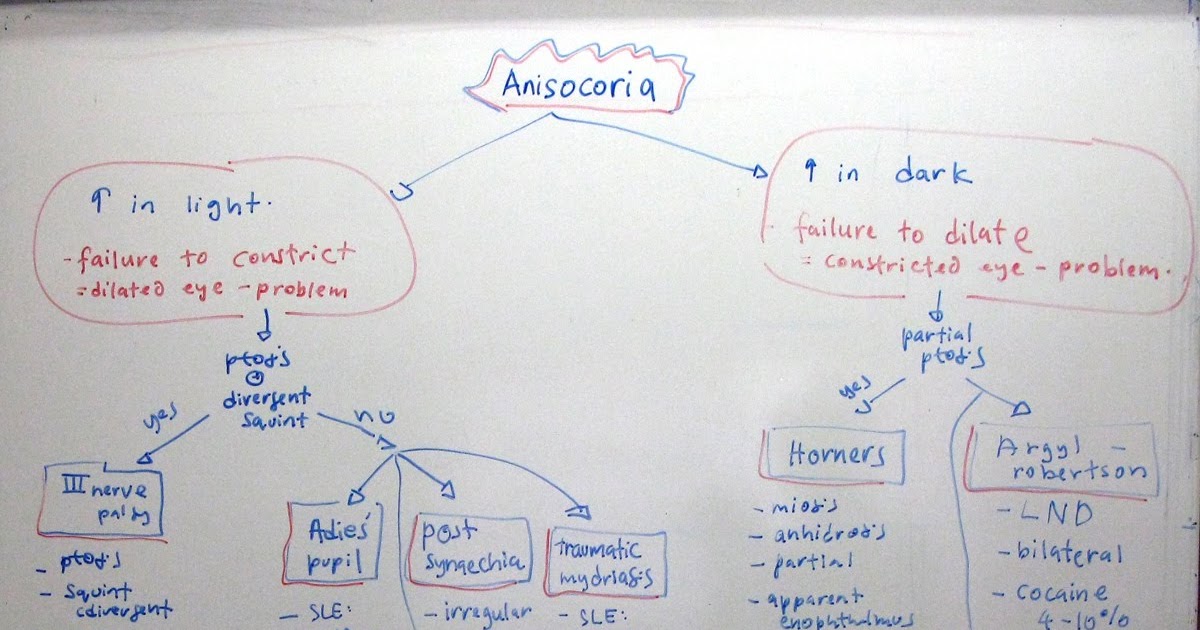 Anisocoria
↑ in light.
- failure to constrict
= dilated eye - problem
↑ in dark
- failure to dilate
= constricted eye - problem.
ptosis
+
divergent
squint
yes
no
III nerve
palsy
- ptosis
- squint
(divergent
Adies'
pupil
- SLE:
post
synaechia
- irregular
traumatic
mydriasis
- SLE:
partial
ptosis
yes
Horners
- miosis
- anhidrosis
- partial
- apparent
enophthalmus
Argyl -
robertson
- LND
- bilateral
- cocaine
4-10%